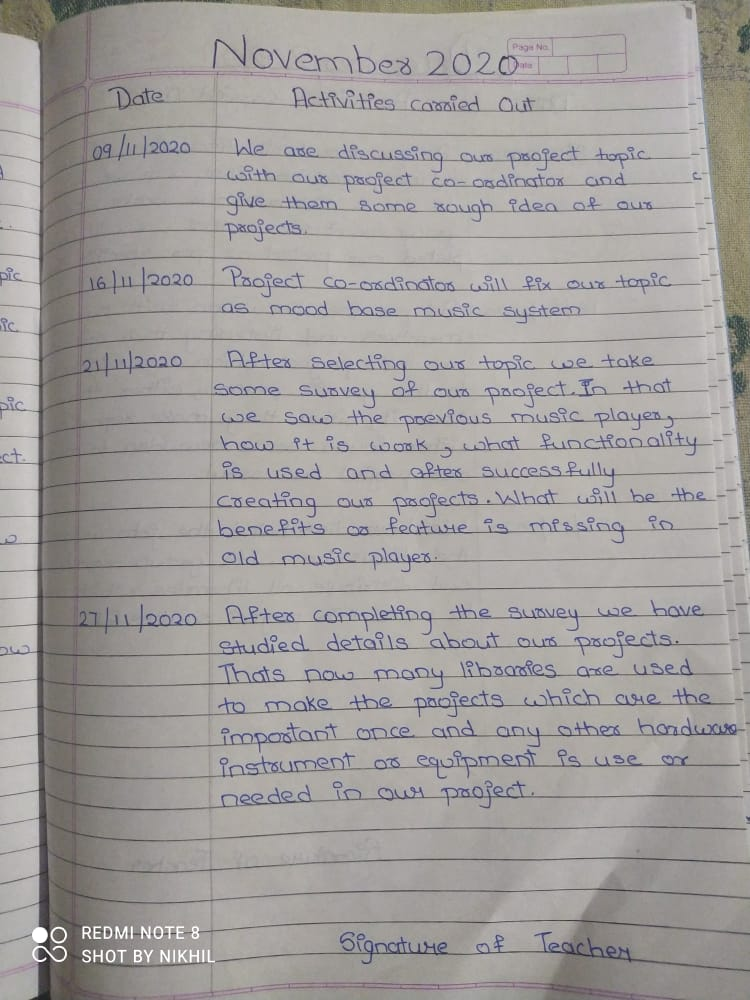 November 2020
Page No.
Date
Date Activities carried Out
09/11/2020 We are discussing our project topic
with our project co-ordinator and
give them some rough idea of our
projects.
16/11/2020 Project co-ordinator will fix our topic
as mood base music system
21/11/2020 After selecting our topic we take
some survey of our project. In that
we saw the previous music player,
how it is work, what functionality
is used and after successfully
creating our projects. What will be the
benefits or feature is missing in
old music player.
27/11/2020 After completing the survey we have
studied details about our projects.
Thats how many libraries are used
to make the projects which are the
important once and any other hardware
instrument or equipment is use or
needed in our project.
Signature of Teacher
REDMI NOTE 8
SHOT BY NIKHIL